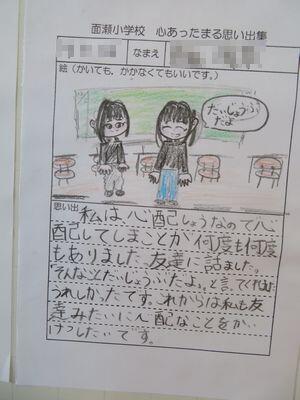 面瀬小学校 心あったまる思い出集
なまえ
絵（かいても、かかなくてもいいです。）
だいじょうぶ
だよ
思い出
私は心配しょうなので心
配してしまことが何度も何度
もありました。友達に話ました。
「そんなことだいじょうぶだよ。」と言ってくれて
うれしかったです。これからは私も友
達みたいに心配なことをか
けつしたいです。